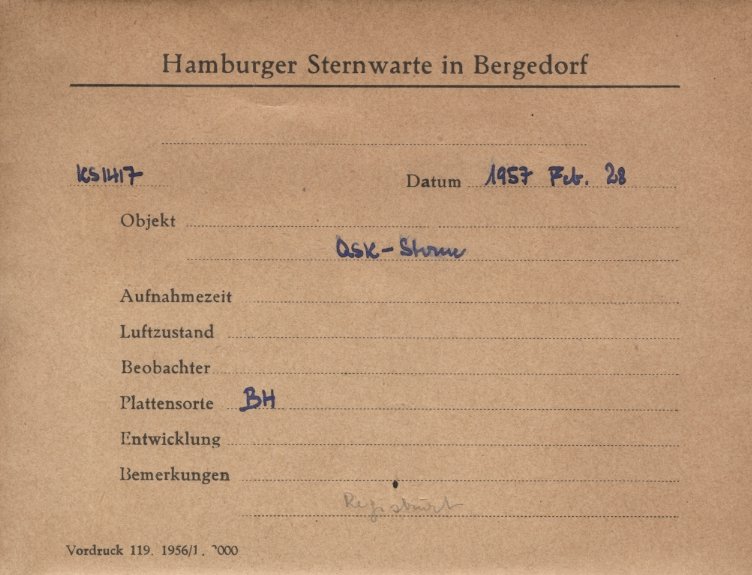 Hamburger Sternwarte in Bergedorf
KS1417 Datum 1957 Feb. 28
Objekt
QSK-Sterne
Aufnahmezeit
Luftzustand
Beobachter
Plattensorte BH
Entwicklung
Bemerkungen
Registriert
Vordruck 119. 1956/1. 2000